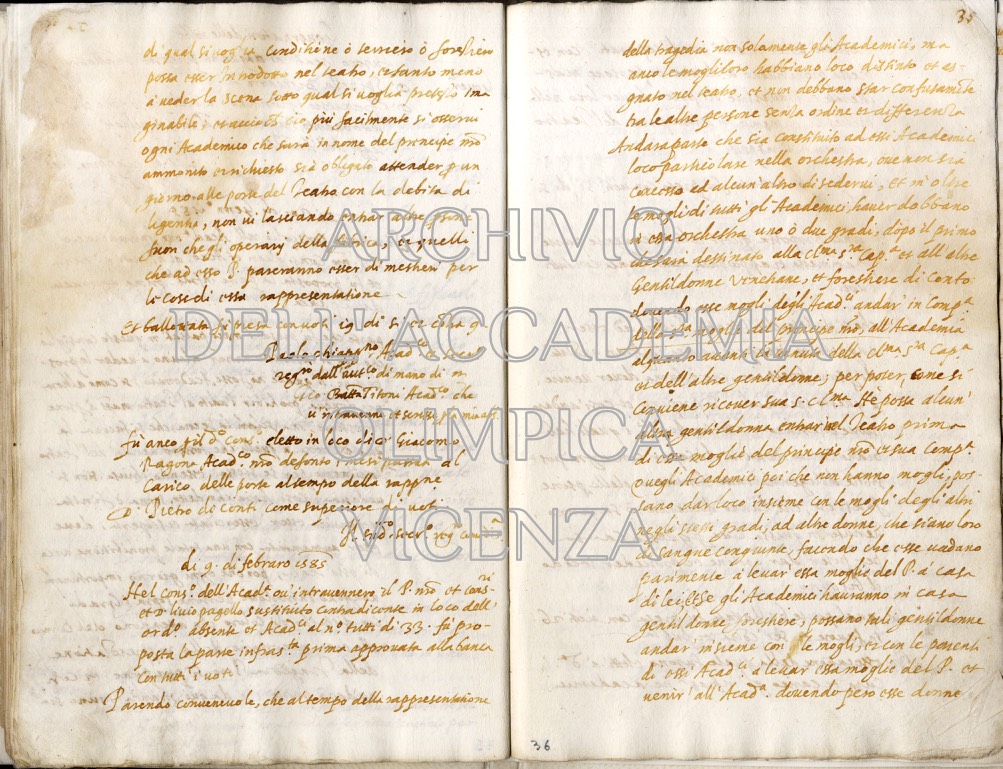 di qual si voglia conditione ò terriero ò forestiero
possa esser introdotto nel teatro, et tanto meno
à veder la scena sotto qual si voglia pretesto ima
ginabile; et acciò ciò più facilmente si osservi
ogni Academico che sarà in nome del principe nro
ammonito et richiesto sia obligato attender p un
giorno alle porte del Teatro con la debita di
ligentia, non vi lasciando entrar altre
fuori che gli operarij della fabrica, et quelli
che ad esso P. pareranno esser di mestieri per
le cose di essa rappresentatione
Et ballottata fu presa con voti 19 di sì et contra 9.
Paolo Chiapino Acad.co et Secr.
di mano di m
Titoni Acad.co che
Fu anco eletto in loco di Giacomo
Ragona Acad.co nro defonto al
carico delle porte al tempo della rappne
D. Pietro di conti come superiore di voti
Il sud.to secr.
di 9. di febraro 1585
Nel cons.o dell'Acad.a ov' intravennero il P. nro et cons.ri
et livio pagello sustituto contradicente in loco dell'
ord.o absente et Acad.ci al n.o tutti di 33. fu pro-
posta la parte infras.ta prima approvata alla banca
con tutti i voti
Parendo convenevole, che al tempo della rappresentatione
35
della tragedia non solamente gli Academici, ma
anco le mogli loro habbiano loco distinto et as-
gnato nel teatro, et non debbano star confusamte
tra le altre persone senza ordine et differentia
Andarà parte che sia constituito ad essi Academici
loco particolare nella orchestra, ove non sia
concesso ad alcun' altro di sedervi, Et in oltre
le mogli di tutti gli Academici haver debbano
in essa orchestra uno ò due gradi, dopò il primo
che sarà destinato alla cl.ma s.ra cap.a et all'altre
Gentildonne Vincentine, et forestiere di conto
dovendo esse mogli degli Acad.ci andar in comp.a
della s.ra moglie del principe nro, all'Academia
alquanto avanti la venuta della cl.ma s.ra Cap.a
et dell'altre gentildonne; per poter, come si
conviene ricever sua s. cl.ma Ne possa alcun'
altra gentildonna entrar nel Teatro prima
di esse moglie del principe nro et sua comp.a
Quegli Academici poi che non hanno mogli, pos-
sano dar loco insieme con le mogli degli altri
negli stessi gradi, ad altre donne, che siano loro
di sangue congiunte, facendo che esse vadano
parimente à levar essa moglie del P. à casa
di lei, Et se gli Academici hauranno in casa
gentildonne forestiere, possano tali gentildonne
andar insieme con le mogli, et con le parenti
di essi Acad.ci à levar essa moglie del P. et
venir all'Acad.a dovendo però esse donne
36
ARCHIVIO
DELL'ACCADEMIA
OLIMPICA
VICENZA